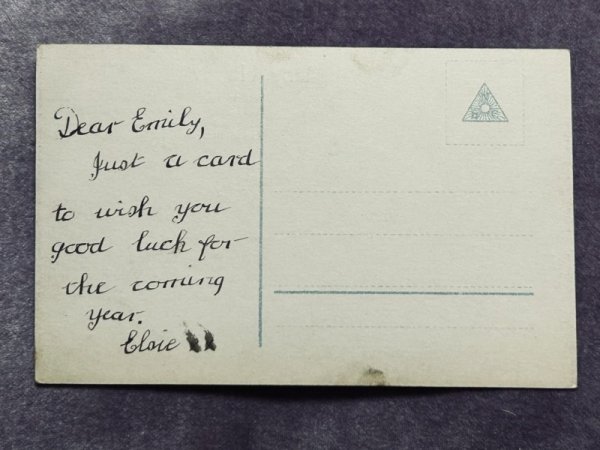 Dear Emily,
Just a card
to wish you
good luck for
the coming
year.
Elsie